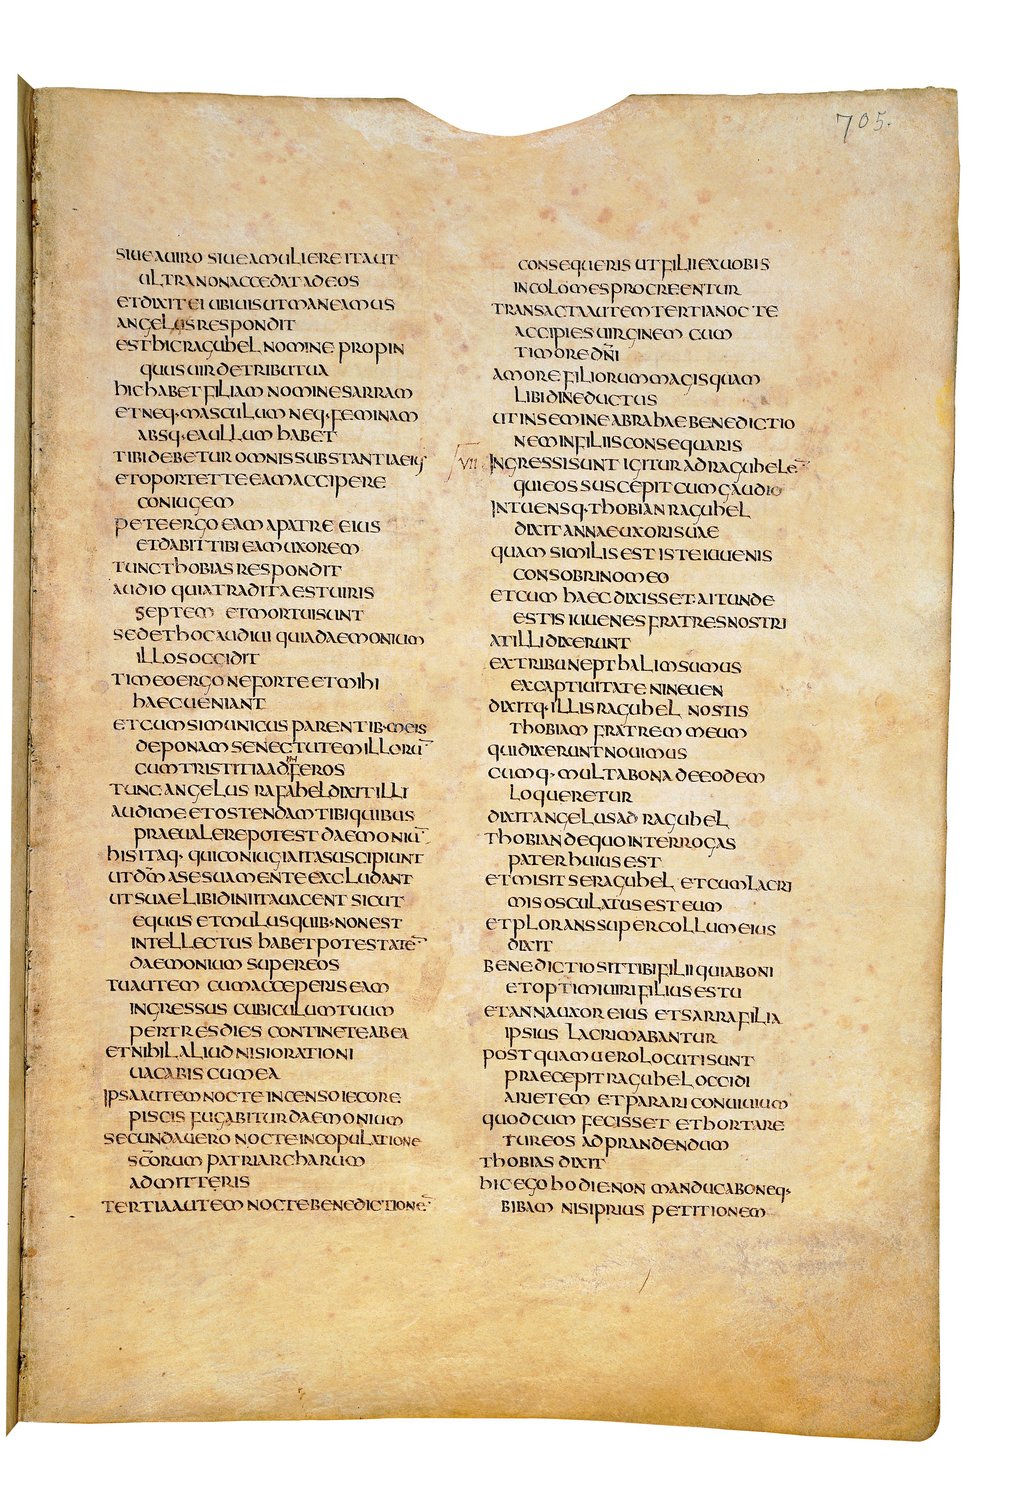 705.
SIUE A UIRO SIUE A MULIERE ITA UT
ULTRA NON ACCEDAT AD EOS
ET DIXIT EI UBI UIS UT MANEAMUS
ANGELUS RESPONDIT
EST HIC RAGUHEL NOMINE PROPIN
QUUS UIR DE TRIBU TUA
HIC HABET FILIAM NOMINE SARRAM
ET NEQ· MASCULUM NEQ· FEMINAM
ABSQ· EA ULLUM HABET
TIBI DEBETUR OMNIS SUBSTANTIA EIꝰ
ET OPORTET TE EAM ACCIPERE
CONIUGEM
PETE ERGO EAM A PATRE EIUS
ET DABIT TIBI EAM UXOREM
TUNC THOBIAS RESPONDIT
AUDIO QUIA TRADITA EST UIRIS
SEPTEM ET MORTUI SUNT
SED ET HOC AUDIUI QUIA DAEMONIUM
ILLOS OCCIDIT
TIMEO ERGO NE FORTE ET MIHI
HAEC UENIANT
ET CUM SIM UNICUS PARENTIB· MEIS
DEPONAM SENECTUTEM ILLORŪ
CUM TRISTITIA AD INFEROS
TUNC ANGELUS RAFAHEL DIXIT ILLI
AUDI ME ET OSTENDAM TIBI QUIBUS
PRAEUALERE POTEST DAEMONIŪ
HIS ITAQ· QUI CONIUGIA ITA SUSCIPIUNT
UT DM̄ A SE SUA MENTE EXCLUDANT
UT SUAE LIBIDINI ITA UACENT SICUT
EQUUS ET MULUS QUIB· NON EST
INTELLECTUS HABET POTESTATĒ
DAEMONIUM SUPER EOS
TU AUTEM CUM ACCEPERIS EAM
INGRESSUS CUBICULUM TUUM
PER TRES DIES CONTINE TE AB EA
ET NIHIL ALIUD NISI ORATIONI
UACABIS CUM EA
IPSA AUTEM NOCTE INCENSO IECORE
PISCIS FUGABITUR DAEMONIUM
SECUNDA UERO NOCTE IN COPULATIONE
SC̄ORUM PATRIARCHARUM
ADMITTERIS
TERTIA AUTEM NOCTE BENEDICTIONĒ
CONSEQUERIS UT FILII EX UOBIS
INCOLOMES PROCREENTUR
TRANSACTA AUTEM TERTIA NOCTE
ACCIPIES UIRGINEM CUM
TIMORE DN̄I
AMORE FILIORUM MAGIS QUAM
LIBIDINE DUCTUS
UT IN SEMINE ABRAHAE BENEDICTIO
NEM IN FILIIS CONSEQUARIS
VII· INGRESSI SUNT IGITUR AD RAGUHELĒ
QUI EOS SUSCEPIT CUM GAUDIO
INTUENSQ· THOBIAN RAGUHEL
DIXIT ANNAE UXORI SUAE
QUAM SIMILIS EST ISTE IUUENIS
CONSOBRINO MEO
ET CUM HAEC DIXISSET· AIT UNDE
ESTIS IUUENES FRATRES NOSTRI
AT ILLI DIXERUNT
EX TRIBU NEPTHALIM SUMUS
EX CAPTIUITATE NINEUEN
DIXITQ· ILLIS RAGUHEL NOSTIS
THOBIAM FRATREM MEUM
QUI DIXERUNT NOUIMUS
CUMQ· MULTA BONA DE EODEM
LOQUERETUR
DIXIT ANGELUS AD RAGUHEL
THOBIAN DE QUO INTERROGAS
PATER HUIUS EST
ET MISIT SE RAGUHEL ET CUM LACRI
MIS OSCULATUS EST EUM
ET PLORANS SUPER COLLUM EIUS
DIXIT
BENEDICTIO SIT TIBI FILII QUIA BONI
ET OPTIMI UIRI FILIUS ES TU
ET ANNA UXOR EIUS ET SARRA FILIA
IPSIUS LACRIMABANTUR
POSTQUAM UERO LOCUTI SUNT
PRAECEPIT RAGUHEL OCCIDI
ARIETEM ET PARARI CONUIUIUM
QUOD CUM FECISSET ET HORTARE
TUR EOS AD PRANDENDUM
THOBIAS DIXIT
HIC EGO HODIE NON MANDUCABO NEQ·
BIBAM NISI PRIUS PETITIONEM